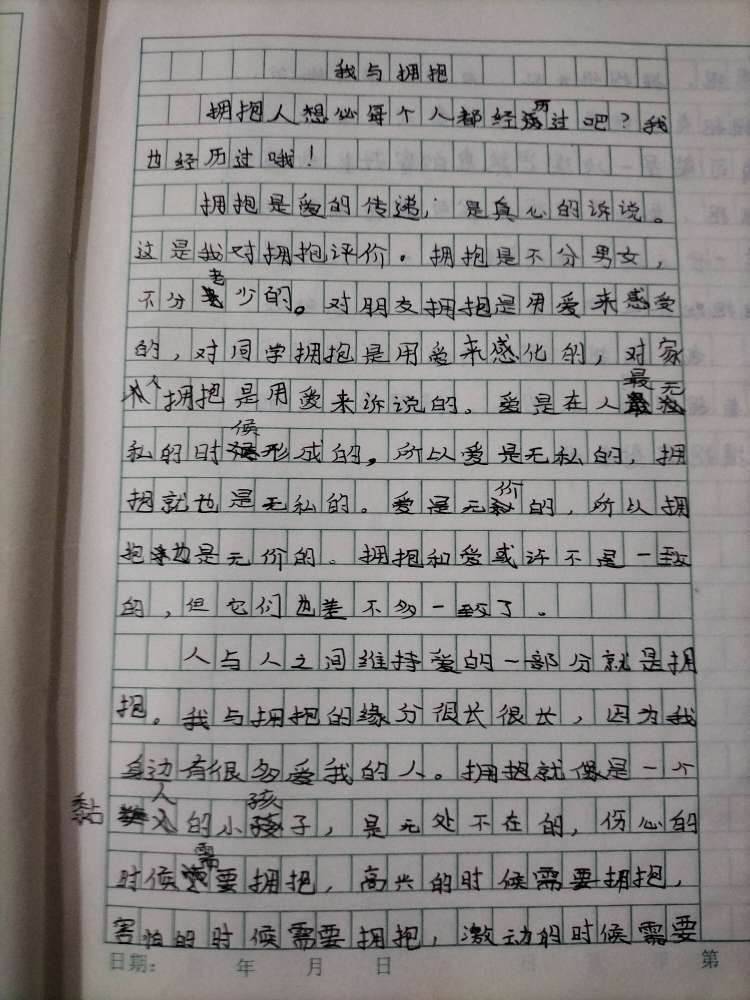 我与拥抱
拥抱人想必每个人都经历过吧？我
也经历过哦！
拥抱是爱的传递，是真心的诉说。
这是我对拥抱评价。拥抱是不分男女，
不分老少的。对朋友拥抱是用爱来感受
的，对同学拥抱是用爱来感化的，对家
人拥抱是用爱来诉说的。爱是在人最无
私的时候形成的，所以爱是无私的，拥
拥就也是无私的。爱是无价的，所以拥
抱也是无价的。拥抱和爱或许不是一致
的，但它们也差不多一致了。
人与人之间维持爱的一部分就是拥
抱。我与拥抱的缘分很长很长，因为我
身边有很多爱我的人。拥抱就像是一个
黏人的小孩子，是无处不在的，伤心的
时候需要拥抱，高兴的时候需要拥抱，
害怕的时候需要拥抱，激动的时候需要
日期： 年 月 日 第